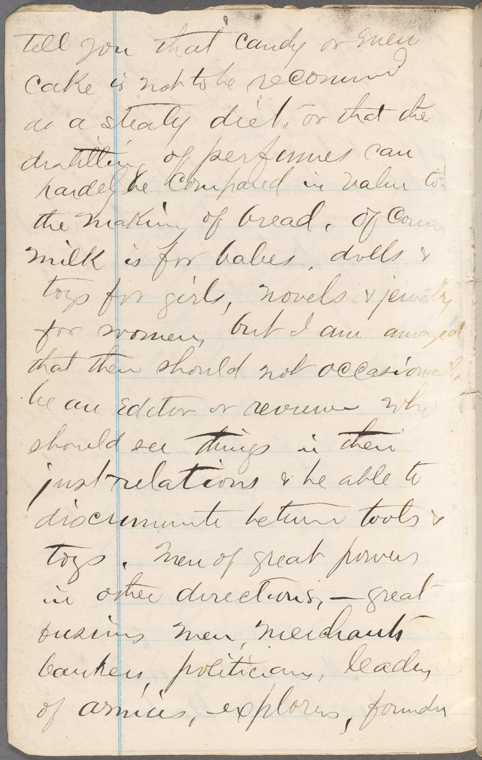 tell you that candy or even
cake is not to be recommend
as a steady diet, or that the
distilling of perfumes can
hardly be compared in value to
the making of bread. Of course
milk is for babes, dolls &
toys for girls, novels & jewelry
for women, but I am amazed
that there should not occasionally
be an editor or reviewer who
should see things in their
just relations & be able to
discriminate between tools &
toys. Men of great powers
in other directions, — great
business men, merchants
bankers, politicians, leaders
of armies, explorers, founders